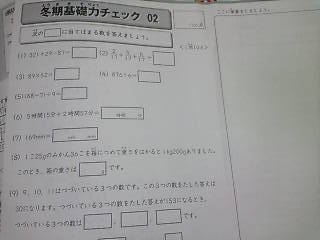 冬期基礎力チェック 02
次の に当てはまる数を答えましょう。
ここに筆算をしましょう。
(3) 89×52=
(4) 876÷6=
(5) (68-7)÷9=
(6) 5時間15分+2時間57分= 時間 分
(7) 169mm= cm mm
(8) 1こ25gのみかん36こを箱につめて重さをはかると1kg200gありました。
このとき、箱の重さは g です。
(9) 9、10、11はつづいている3つの数です。この3つの数をたした答えは
30になります。つづいている3つの数をたした答えが153になるとき、
つづいている3つの数は 、 、 です。